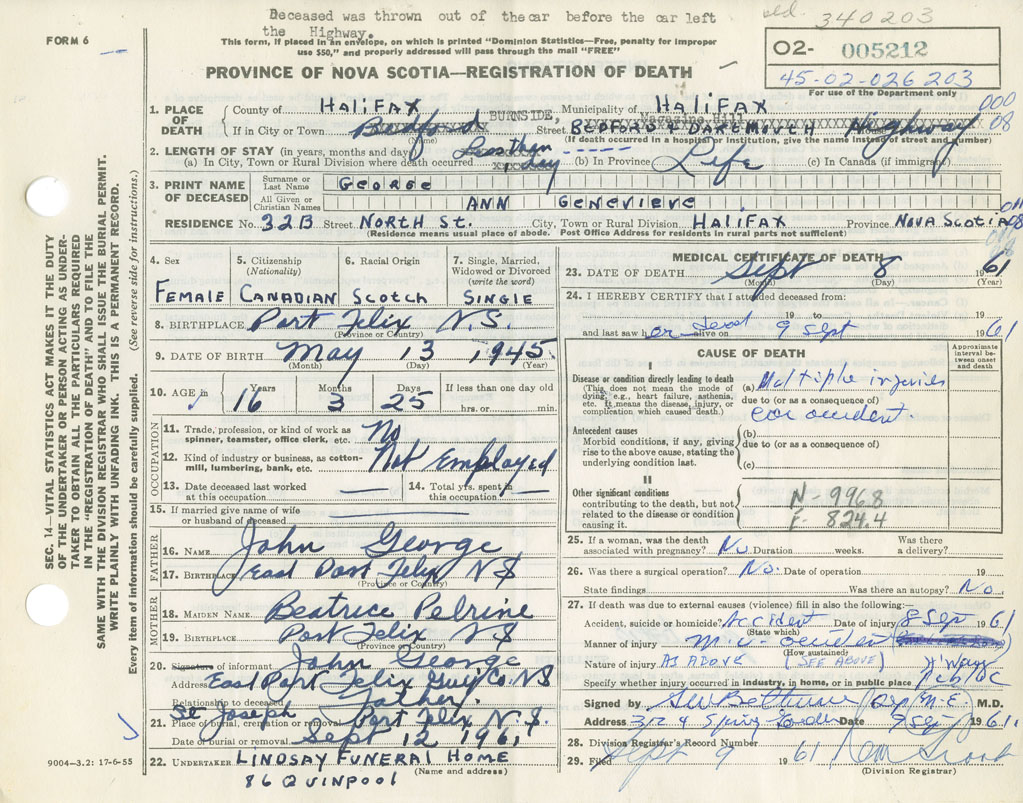 Deceased was thrown out of the car before the car left
the Highway.
340203
FORM 6
This form, if placed in an envelope, on which is printed "Dominion Statistics—Free, penalty for improper
use $50," and properly addressed will pass through the mail "FREE"
02- 005212
45-02-026203
For use of the Department only
PROVINCE OF NOVA SCOTIA—REGISTRATION OF DEATH
1. PLACE OF DEATH
County of HALIFAX Municipality of HALIFAX
000
08
BURNSIDE, Magazine Hill
If in City or Town Bedford Street BEDFORD & DARTMOUTH Highway
(If death occurred in a hospital or institution, give the name instead of street and number)
2. LENGTH OF STAY (in years, months and days)
(a) In City, Town or Rural Division where death occurred Less than 1 day (b) In Province Life (c) In Canada (if immigrant)
3. PRINT NAME OF DECEASED
Surname or Last Name George
All Given or Christian Names ANN GENEVIEVE
RESIDENCE No. 32B Street NORTH St. City, Town or Rural Division HALIFAX Province NOVA SCOTIA 08
(Residence means usual place of abode. Post Office Address for residents in rural parts not sufficient)
4. Sex
FEMALE
5. Citizenship (Nationality)
CANADIAN
6. Racial Origin
SCOTCH
7. Single, Married, Widowed or Divorced (write the word)
SINGLE
8. BIRTHPLACE Port Felix N.S.
(Province or Country)
9. DATE OF BIRTH May 13 1945
(Month) (Day) (Year)
10. AGE in Years 16 Months 3 Days 25 If less than one day old
hrs. or min.
OCCUPATION
11. Trade, profession, or kind of work as spinner, teamster, office clerk, etc. No
12. Kind of industry or business, as cotton-mill, lumbering, bank, etc. Not Employed
13. Date deceased last worked at this occupation
14. Total yrs. spent in this occupation
15. If married give name of wife or husband of deceased
FATHER
16. NAME John George
17. BIRTHPLACE East Port Felix N S
(Province or Country)
MOTHER
18. MAIDEN NAME. Beatrice Pelrine
19. BIRTHPLACE Port Felix N S
(Province or Country)
20. Signature of informant John George
Address East Port Felix Guy Co. N S
Relationship to deceased Father.
St Joseph
21. Place of burial, cremation or removal Port Felix N. S.
Date of burial or removal Sept 12 1961
22. UNDERTAKER LINDSAY FUNERAL HOME
86 QUINPOOL
(Name and address)
MEDICAL CERTIFICATE OF DEATH
23. DATE OF DEATH Sept 8 1961
(Month) (Day) (Year)
24. I HEREBY CERTIFY that I attended deceased from:
19 to 19
and last saw her dead alive on 9 Sept 1961
CAUSE OF DEATH
Approximate interval between onset and death
I
Disease or condition directly leading to death
(This does not mean the mode of dying, e.g., heart failure, asthenia, etc. It means the disease, injury, or complication which caused death.)
(a) Multiple injuries
due to (or as a consequence of)
car accident.
Antecedent causes
Morbid conditions, if any, giving rise to the above cause, stating the underlying condition last.
(b)
due to (or as a consequence of)
(c)
II
Other significant conditions
contributing to the death, but not related to the disease or condition causing it.
N - 996.8
E - 824.4
25. If a woman, was the death associated with pregnancy? No Duration weeks. Was there a delivery?
26. Was there a surgical operation? No. Date of operation 19
State findings Was there an autopsy? No
27. If death was due to external causes (violence) fill in also the following:—
Accident, suicide or homicide? Accident Date of injury 8 Sept 1961
(State which)
Manner of injury m.v. accident
(How sustained)
Nature of injury AS ABOVE (SEE ABOVE) H'Way
Specify whether injury occurred in industry, in home, or in public place
Signed by M.D.
Address Spring Garden Date 9 Sept 1961
28. Division Registrar's Record Number
29. Filed Sept 9 1961
(Division Registrar)
SEC. 14—VITAL STATISTICS ACT MAKES IT THE DUTY
OF THE UNDERTAKER OR PERSON ACTING AS UNDER-
TAKER TO OBTAIN ALL THE PARTICULARS REQUIRED
IN THE "REGISTRATION OF DEATH" AND TO FILE THE
SAME WITH THE DIVISION REGISTRAR WHO SHALL ISSUE THE BURIAL PERMIT.
WRITE PLAINLY WITH UNFADING INK. THIS IS A PERMANENT RECORD.
Every item of information should be carefully supplied. (See reverse side for instructions.)
9004-3.2: 17-6-55